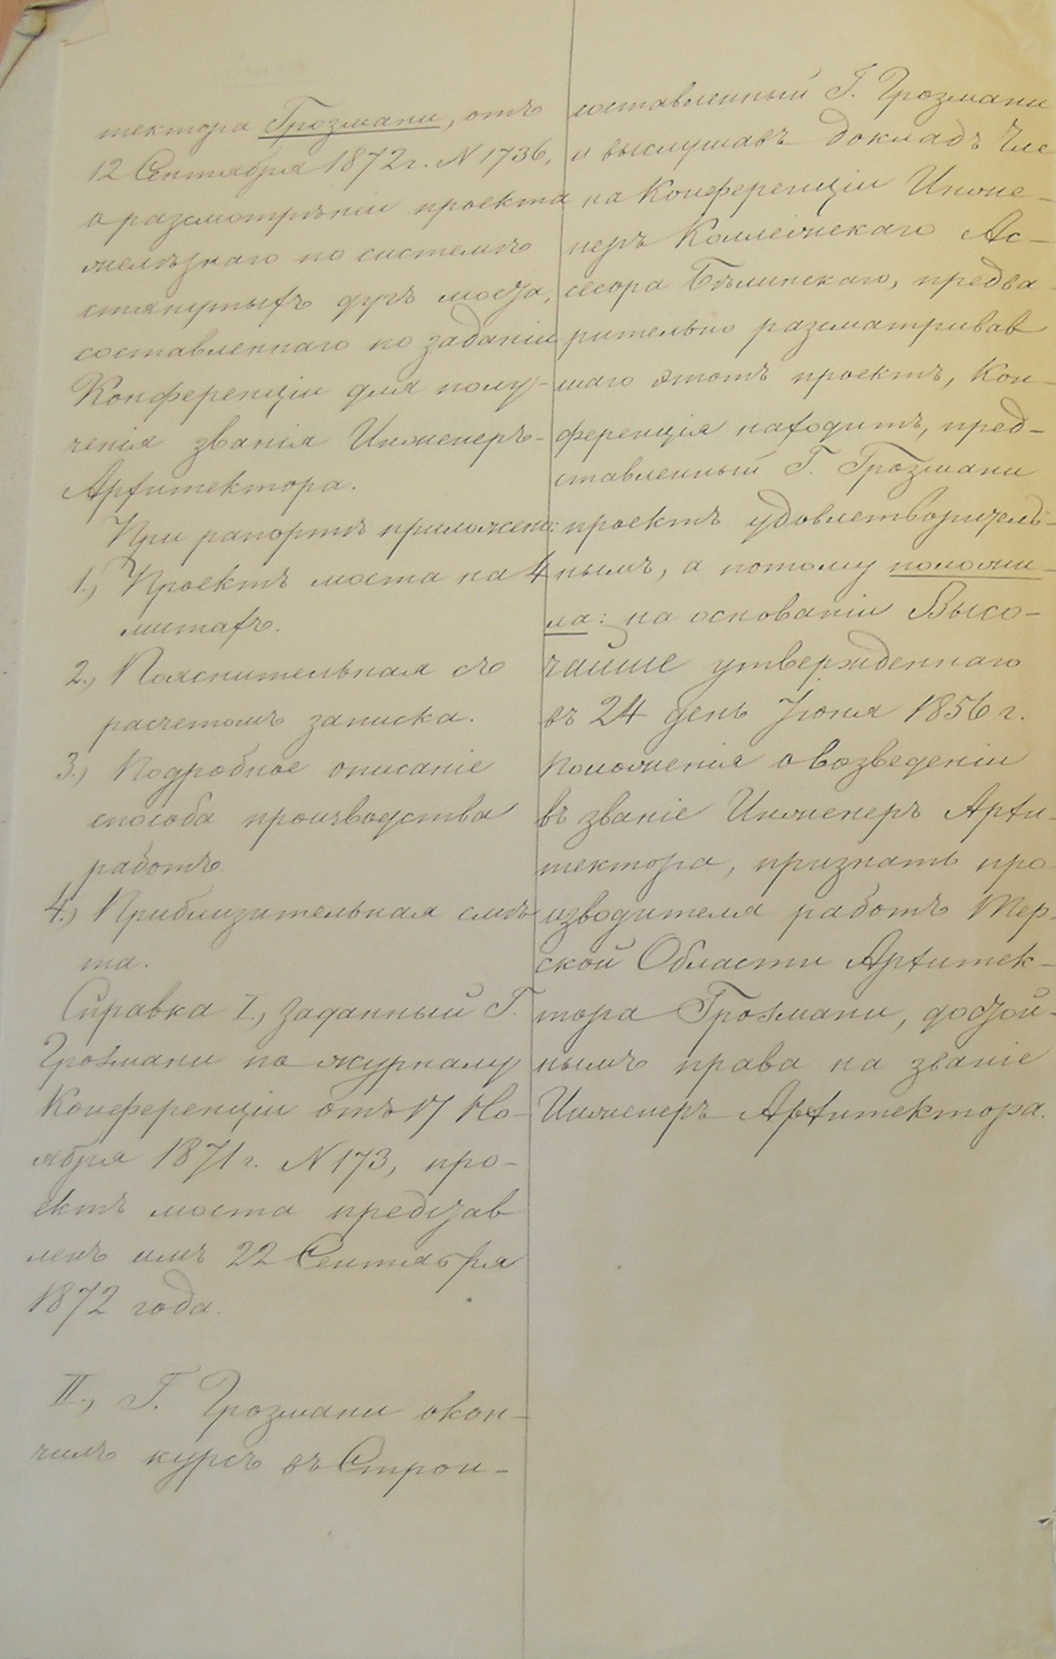 тектора Грозмани, отъ
12 Сентября 1872 г. N 1736,
о разсмотрѣніи проекта
желѣзнаго по системѣ
стянутыхъ дугъ моста,
составленнаго по заданію
Конференціи для полу-
ченія званія Инженеръ-
Архитектора.
При рапортѣ приложены:
1., Проектъ моста на 4
листахъ.
2., Пояснительная съ
расчетомъ записка.
3., Подробное описаніе
способа производства
работъ
4., Приблизительная смѣ
та.
Справка I., Заданный Г.
Грозмани по журналу
Конференціи отъ 17 Но-
ября 1871 г. N 173, про-
ектъ моста представ
ленъ имъ 22 Сентября
1872 года.
II., Г. Грозмани окон-
чилъ курсъ въ Строи-
составленный Г. Грозмани
и выслушавъ докладъ Чле
на Конференціи Инже-
неръ Коллежскаго Ас-
сесора Бѣлинскаго, предва-
рительно разсматривав
шаго этотъ проектъ, Кон-
ференція находитъ, пред-
ставленный Г. Грозмани
проектъ удовлетворитель-
нымъ, а потому положи-
ла: на основаніи Высо-
чайше утвержденнаго
въ 24 день Іюня 1856 г.
положенія о возведеніи
въ званіе Инженеръ Архи-
тектора, признать про
изводителя работъ Тер-
ской Области Архитек-
тора Грозмани, достой-
нымъ права на званіе
Инженеръ Архитектора.